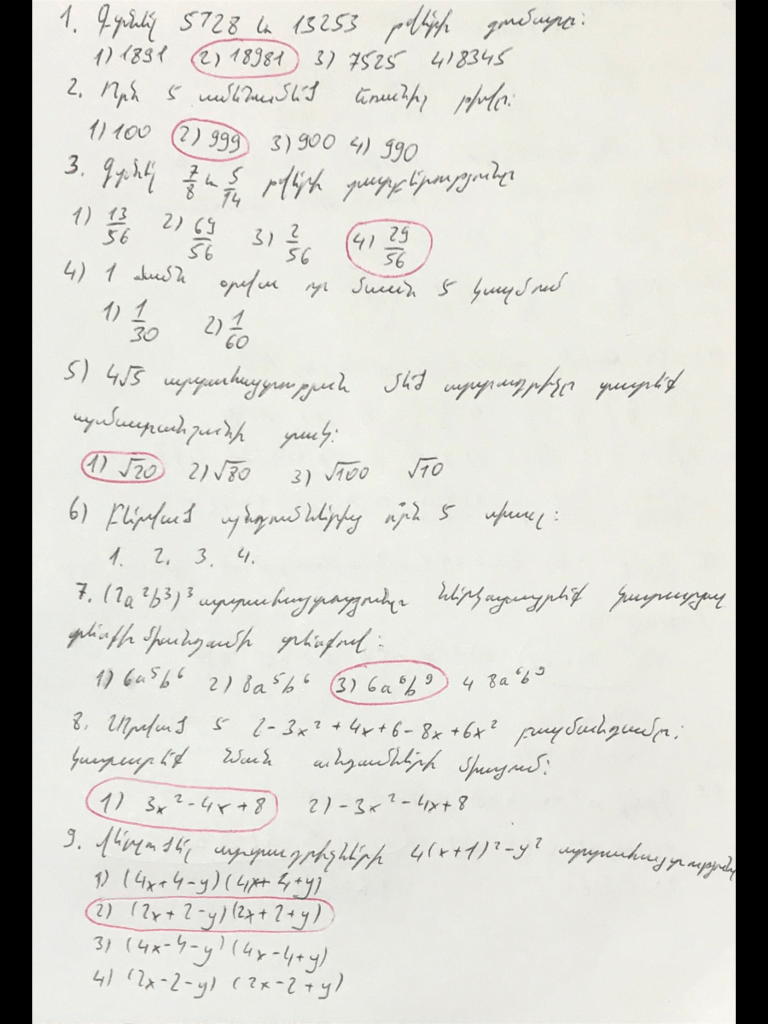 1. Գտնել 5728 և 13253 թվերի գումարը:
1) 1891 2) 18981 3) 7525 4) 8345
2. Որն է ամենամեծ եռանիշ թիվը:
1) 100 2) 999 3) 900 4) 990
3. Գտնել 7/8 և 5/14 թվերի տարբերությունը
1) 13/56 2) 69/56 3) 2/56 4) 29/56
4) 1 ժամն օրվա որ մասն է կազմում
1) 1/30 2) 1/60
5) 4√5 արտահայտության մեծ արտադրիչը տարեք
արմատանշանի տակ:
1) √20 2) √80 3) √100 √10
6) Բերված պնդումներից ո՞րն է սխալ:
1. 2. 3. 4.
7. (2a²b³)³ արտահայտությունը ներկայացրեք կատարյալ
տեսքի միանդամի տեսքով:
1) 6a⁵b⁶ 2) 8a⁵b⁶ 3) 6a⁶b⁹ 4 8a⁶b⁹
8. Տրված է 2-3x²+4x+6-8x+6x² բազմանդամը:
կատարեք նման անդամների միացում:
1) 3x²-4x+8 2) -3x²-4x+8
9. Վերլուծել արտադրիչների 4(x+1)²-y² արտահայտությունը
1) (4x+4-y)(4x+4+y)
2) (2x+2-y)(2x+2+y)
3) (4x-4-y)(4x-4+y)
4) (2x-2-y) (2x-2+y)